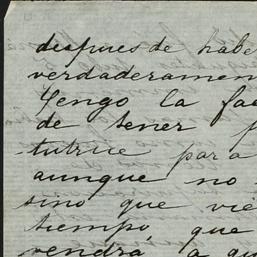 despues de habe
verdaderamen
Tengo la fa
de tener
tutrice para
aunque no
sino que vie
tiempo, que
vendrá a qu